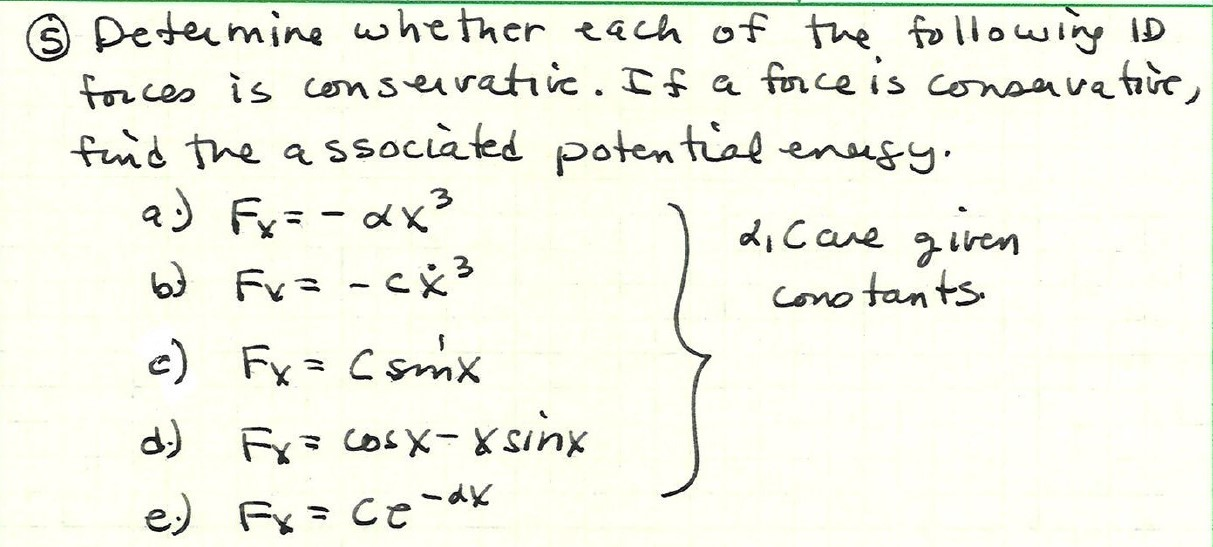 ⑤ Determine whether each of the following 1D
forces is conservative. If a force is conservative,
find the associated potential energy.
a.) Fₓ = - αx³
b) Fₓ = - cẋ³
c) Fₓ = C sinx
d.) Fₓ = cosx - x sinx
e.) Fₓ = Ce^{-αx}
α, C are given
constants.